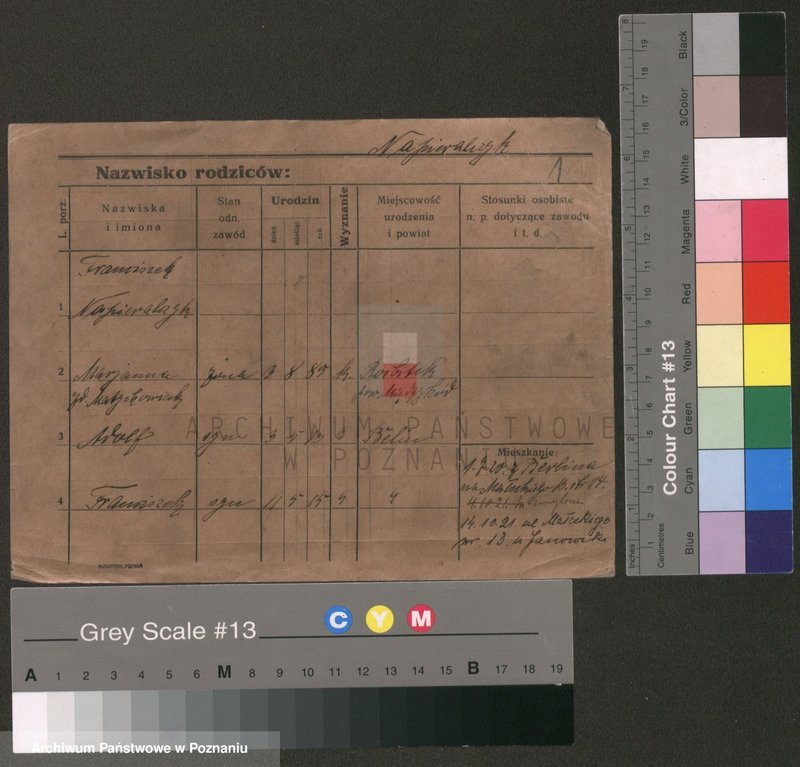 Napieralczyk
1
Nazwisko rodziców:
L. porz.
Nazwiska
i imiona
Stan
odn.
zawód
Urodzin
dzień
miesiąc
rok
Wyznanie
Miejscowość
urodzenia
i powiat
Stosunki osobiste
n. p. dotyczące zawodu
i t. d.
Franciszek
1 Napieralczyk
2 Marjanna żona 3 8 k.
pow. Międzychód
3 Adolf syn 5 Berlin
Mieszkanie:
4 Franciszek syn 11 5 15 " "
z Berlina
14.10.21. ul Małeckiego
nr. 13. u
ARCHIWUM PAŃSTWOWE
W POZNANIU
Grey Scale #13
C Y M
A 1 2 3 4 5 6 M 8 9 10 11 12 13 14 15 B 17 18 19
Archiwum Państwowe w Poznaniu
Colour Chart #13
Black
3/Color
White
Magenta
Red
Yellow
Green
Cyan
Blue
Inches 1 2 3 4 5 6 7 8
Centimetres 1 2 3 4 5 6 7 8 9 10 11 12 13 14 15 16 17 18 19